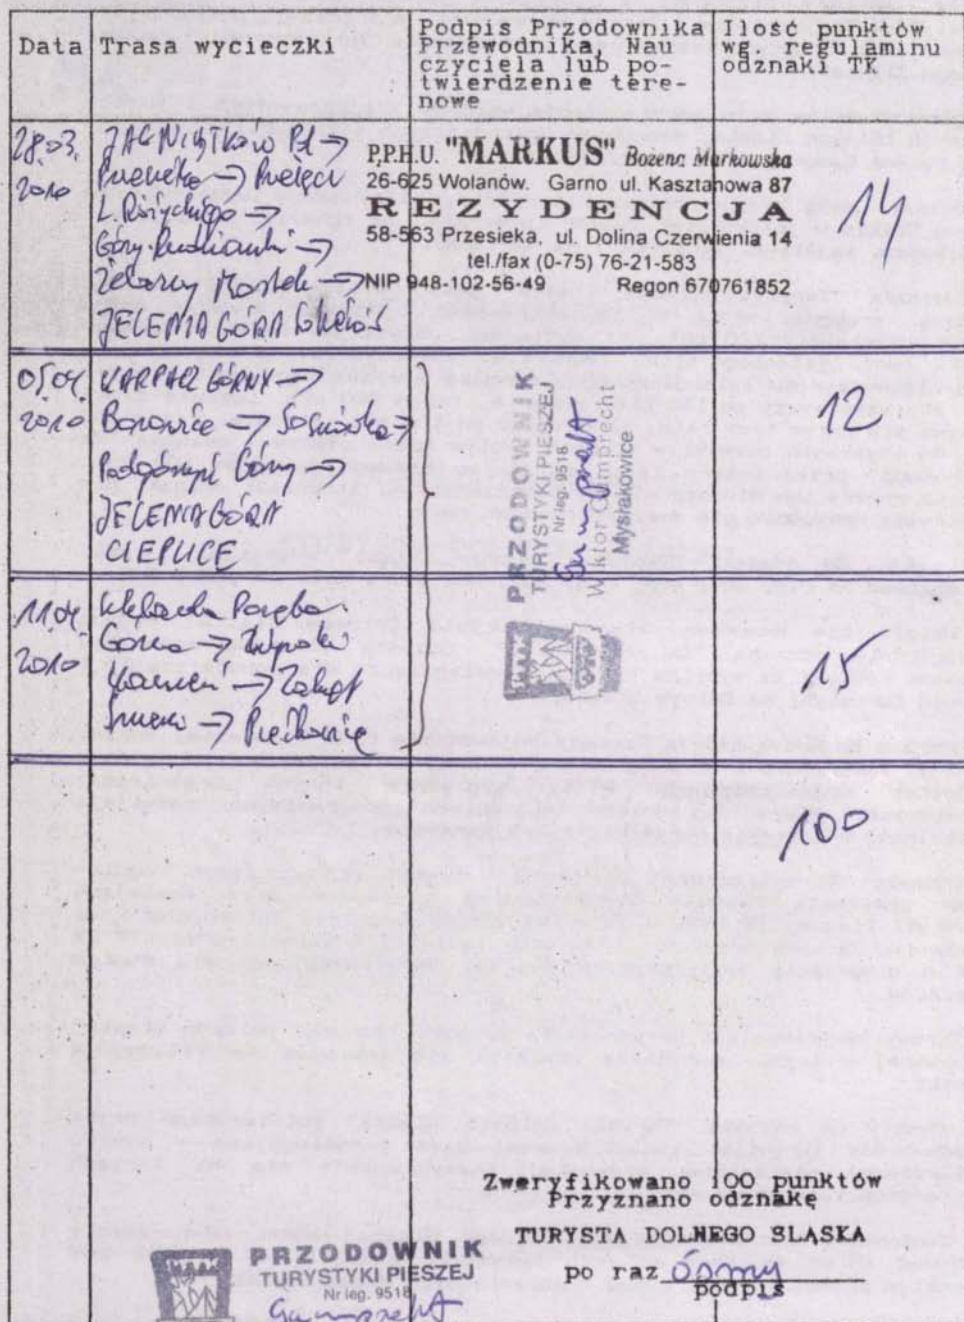 Data
Trasa wycieczki
Podpis Przodownika
Przewodnika, Nau
czyciela lub po-
twierdzenie tere-
nowe
Ilość punktów
wg. regulaminu
odznaki TK
28.03.
2010
JAGNIĄTKÓW Pl →
Przesieka →
L. Różyckiego →
Góry →
Żelazny Mostek →
JELENIA GÓRA
P.P.H.U. "MARKUS" Bożena Markowska
26-625 Wolanów. Garno ul. Kasztanowa 87
REZYDENCJA
58-563 Przesieka, ul. Dolina Czerwienia 14
tel./fax (0-75) 76-21-583
NIP 948-102-56-49 Regon 670761852
14
05.04.
2010
KARPACZ GÓRNY →
Borowice → Sosnówka →
Podgórzyn Górny →
JELENIA GÓRA
CIEPLICE
PRZODOWNIK
TURYSTYKI PIESZEJ
Nr leg. 9518
Gumprecht
Wiktor Gumprecht
Mysłakowice
12
11.04.
2010
Szklarska Poręba
Górna →
Kamień → Zakręt
Śmierci → Piechowice
15
100
Zweryfikowano 100 punktów
Przyznano odznakę
TURYSTA DOLNEGO SLĄSKA
po raz ósmy
podpis
PRZODOWNIK
TURYSTYKI PIESZEJ
Nr leg. 9518
Gumprecht